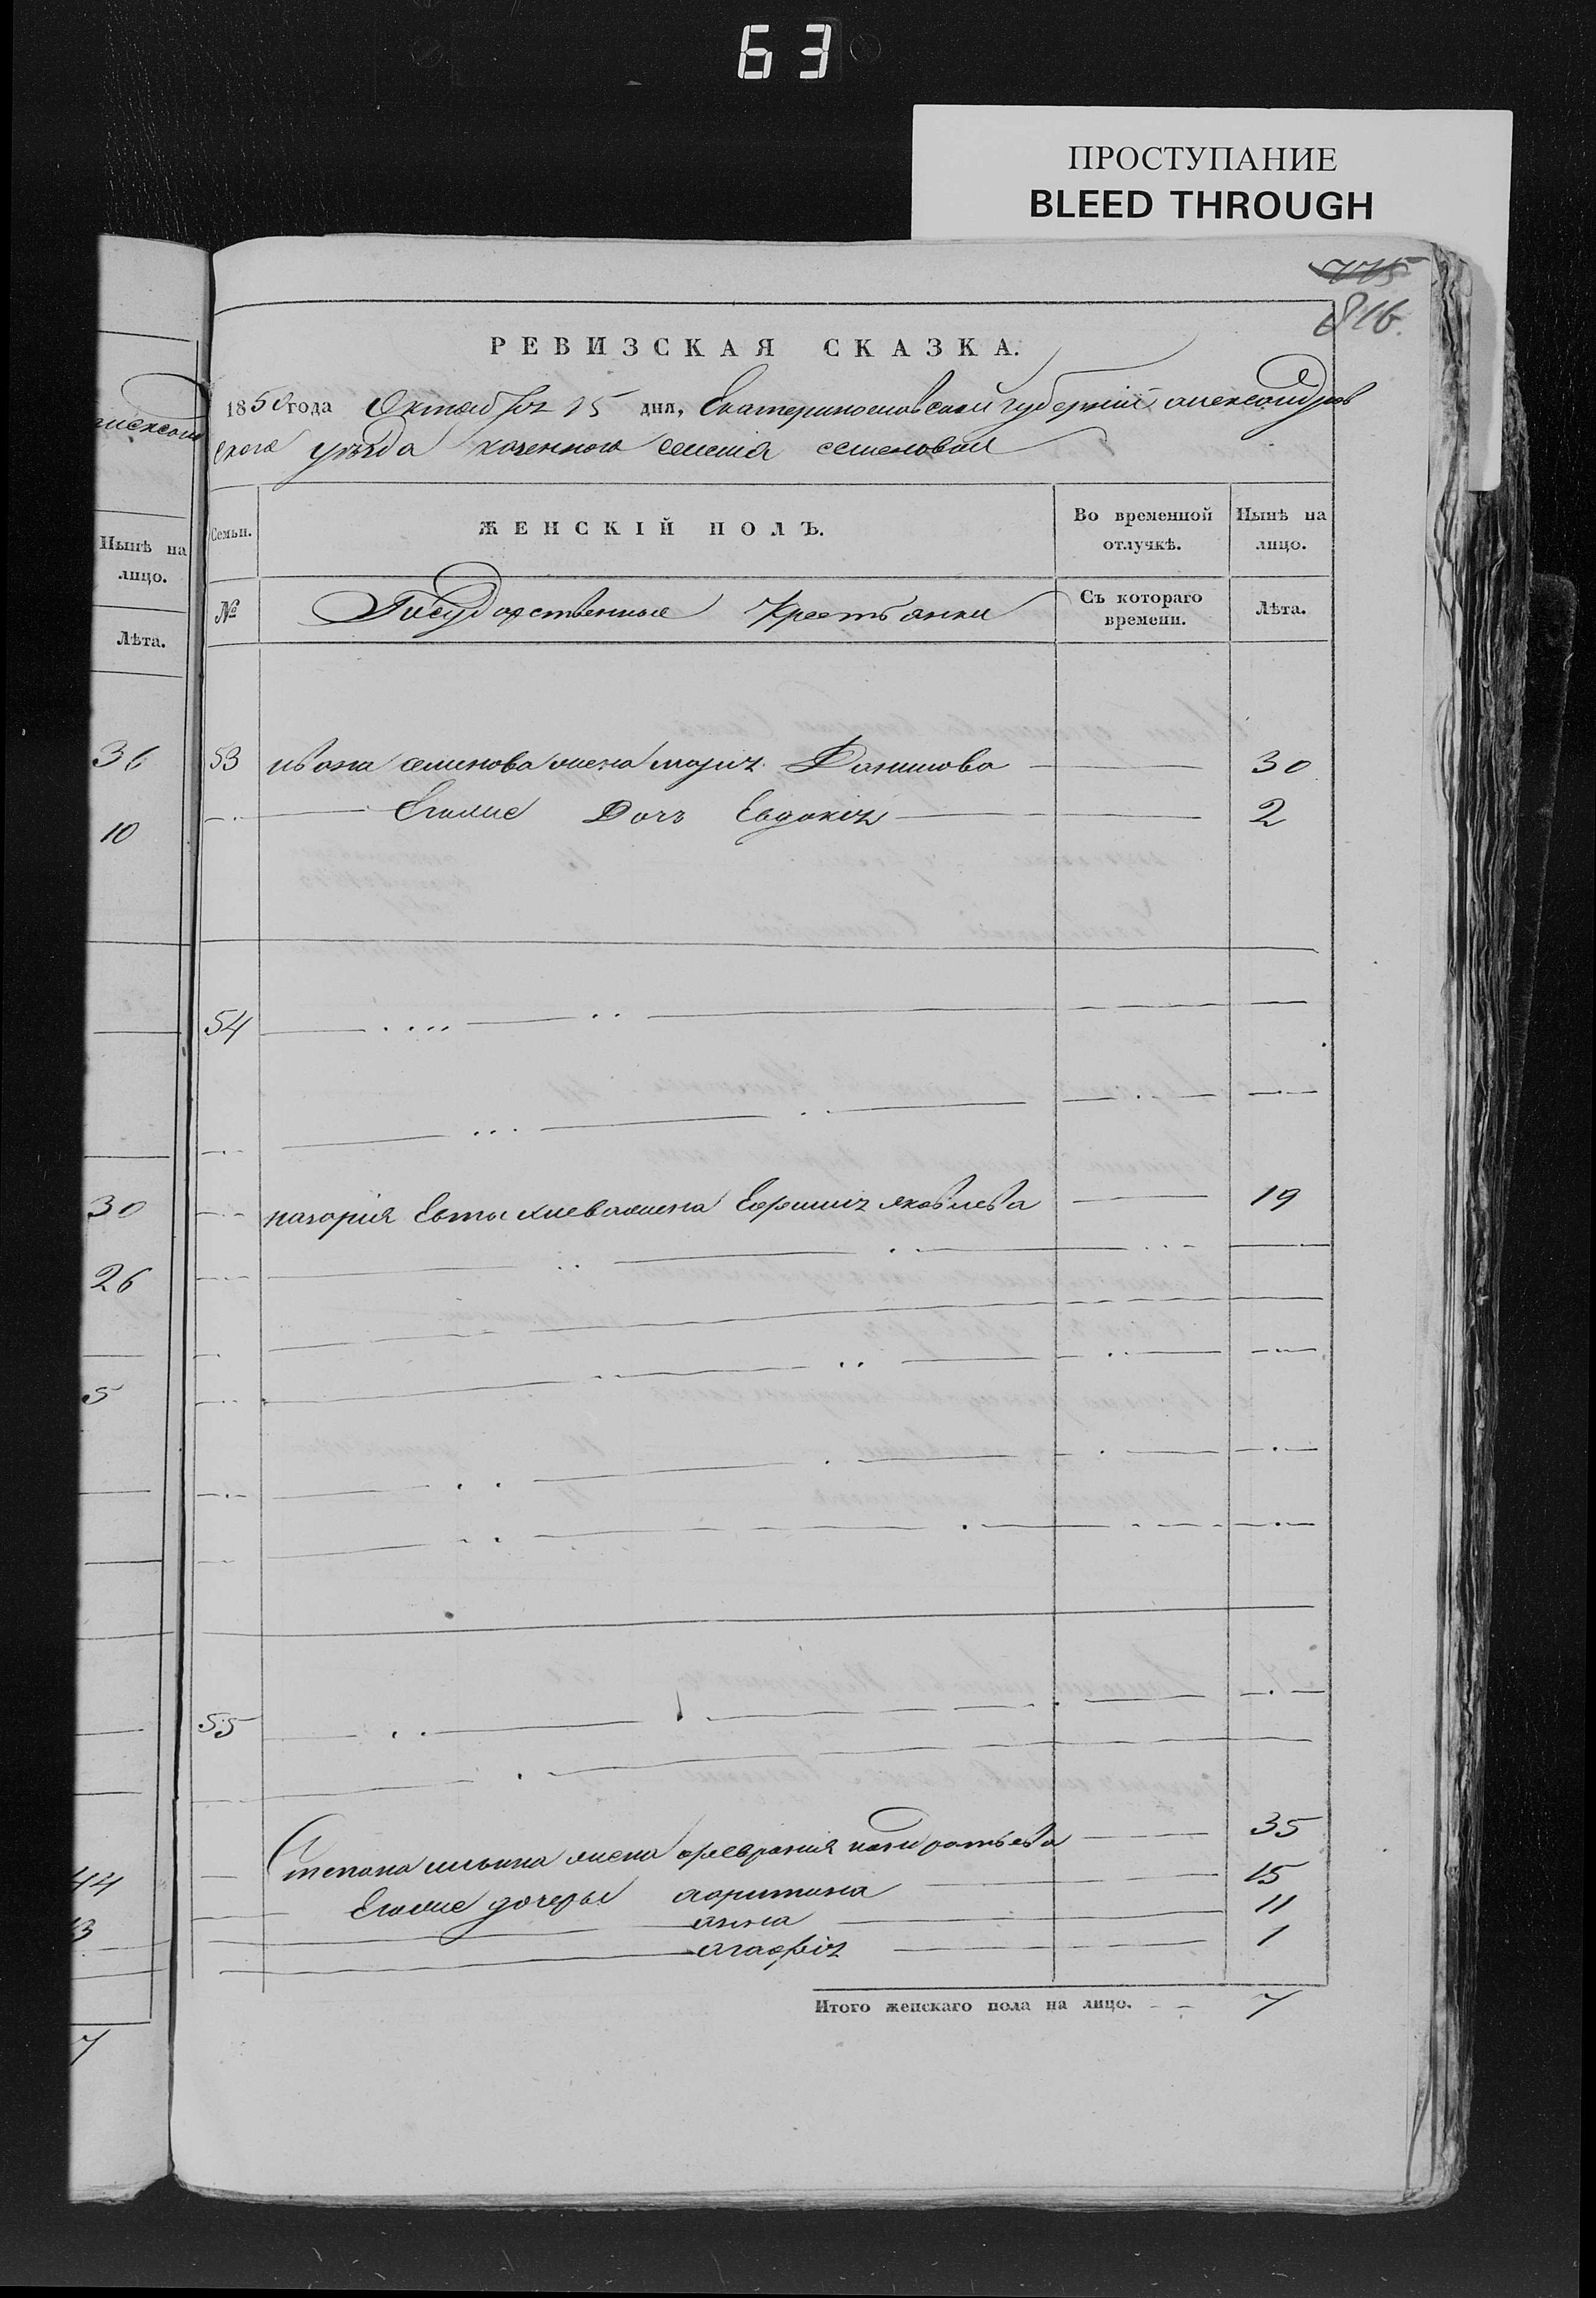 63
ПРОСТУПАНИЕ
BLEED THROUGH
775
816.
РЕВИЗСКАЯ СКАЗКА.
1850 года Октября 15 дня, Екатеринославской губерніи александров
ского уѣзда казенного селенія семеновки
Нынѣ на лицо.
Лѣта.
36
10
30
26
5
44
13
7
Семьи. ЖЕНСКІЙ ПОЛЪ. Во временной отлучкѣ. Нынѣ на лицо.
№ Государственные Крестьянки Съ котораго времени. Лѣта.
53 ивана семенова жена марія Данилова 30
Егоже Дочъ Евдокія 2
54
назарія Евтыхиева жена Ефимія яковлева 19
55
Степана ильина жена февранія кондратьева 35
Егоже дочеры 15
анна 11
агафія 1
Итого женскаго пола на лицо. 7